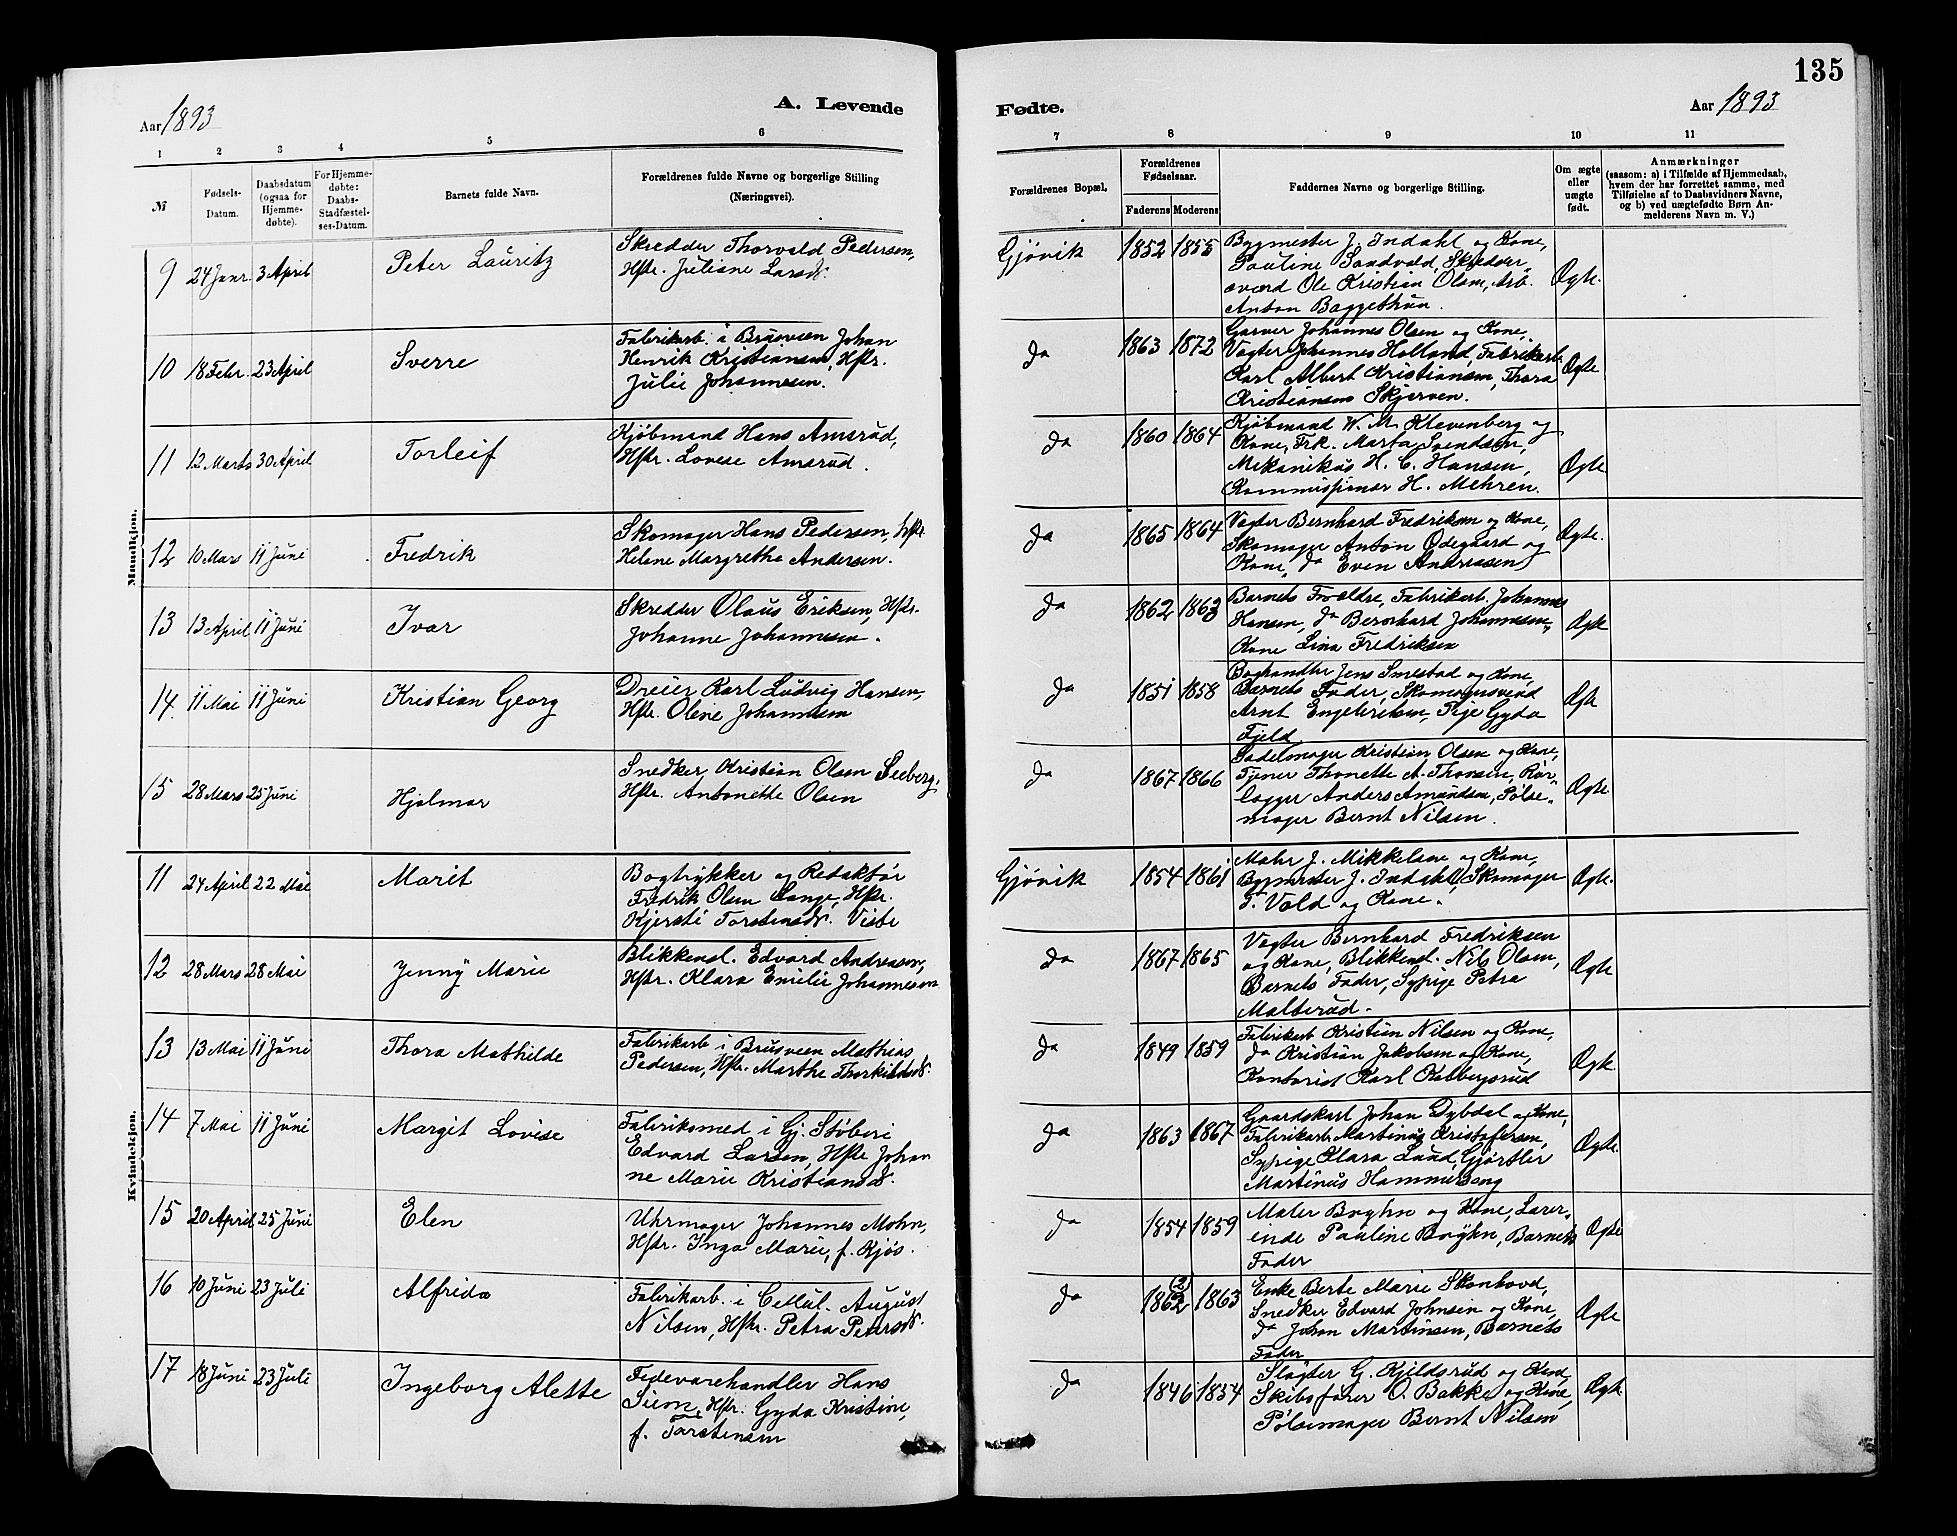 135
Aar 1893
A. Levende
Fødte.
Aar 1893
1 2 3 4 5 6 7 8 9 10 11
№
Fødsels-Datum.
Daabsdatum (ogsaa for Hjemme-døbte).
For Hjemme-døbte: Daabs-Stadfæstel-ses-Datum.
Barnets fulde Navn.
Forældrenes fulde Navne og borgerlige Stilling (Næringsvei).
Forældrenes Bopæl.
Forældrenes Fødselsaar.
Faderens Moderens
Faddernes Navne og borgerlige Stilling.
Om ægte eller uægte født.
Anmærkninger
(saasom: a) i Tilfælde af Hjemmedaab,
hvem der har forrettet samme, med
Tilføielse af to Daabsvidners Navne,
og b) ved uægtefødte Børn An-
melderens Navn m. V.)
Mandkjøn.
9 24 Janr. 3 April Peter Lauritz
Skredder Thorvald Pedersen,
Hstr. Juliane Larsd.
Gjøvik 1852 1855
Bygmester J. Indahl og Kone,
Pauline Sandvold, Skredder-
svend Ole Kristian Olsen, Arb.
Anton Baggethun.
Ægte.
10 18 Febr. 23 April Sverre
Fabrikarb. i Brusveen Johan
Henrik Kristiansen, Hstr.
Julie Johannesen.
Do 1863 1872
Garver Johannes Olsen og Kone,
Vagter Johannes Holland, Fabrikarb.
Karl Albert Kristiansen, Thora
Kristiansens Skjerven.
Ægte
11 12 Marts 30 April Torleif
Kjøbmand Hans Amsrud,
Hstr. Lovise Amsrud.
Do 1860 1864
Kjøbmand W. M. Klevenberg og
Kone, Frk. Marta Svendsen,
Mekanikus H. C. Hansen,
Kommissionær H. Mehren.
Ægte
12 10 Mars 11 Juni Fredrik
Skomager Hans Pedersen, Hstr.
Helene Margrethe Andersen.
Do 1865 1864
Vagter Bernhard Fredriksen og Kone,
Skomager Anton Ødegaard og
Kone, do Even Andreasen
Ægte.
13 13 April 11 Juni Ivar
Skredder Olaus Eriksen, Hstr.
Johanne Johannesen.
Do 1862 1863
Barnets Forældre, Fabrikarb. Johannes
Hansen, do Bernhard Johannesen,
Kone Lina Fredriksen
Ægte
14. 11 Mai 11 Juni Kristian Georg
Dreier Karl Ludvig Hansen,
Hstr. Oline Johannesen
Do 1851 1858
Boghandler Jens Smestad og Kone,
Barnets Fader, Skomagersvend
Arnt Engebretsen, Pige Gyda
Fjeld
Ægte
15 28 Mars 25 Juni Hjalmar
Snedker Kristian Olsen Seeberg,
Hstr. Antonette Olsen
Do 1867 1866
Sadelmager Kristian Olsen og Kone,
Tjener Thonette A. Thorsen, Rør-
lægger Anders Amundsen, Pølse-
mager Bernt Nilsen.
Ægte
Kvindekjøn.
11 24 April 22 Mai Marit
Bogtrykker og Redaktør
Fredrik Olsen Lange, Hstr.
Kjersti Torstensd. Viste
Gjøvik 1854 1861
Maler J. Mikkelsen og Kone,
Bygmester J. Indahl, Skomager
T. Vold og Kone.
Ægte.
12 28 Mars 28 Mai Jenny Marie
Blikkensl. Edvard Andreasen,
Hstr. Klara Emilie Johannesen
Do 1867 1865
Vagter Bernhard Fredriksen
og Kone, Blikkensl. Nils Olsen,
Barnets Fader, Sypige Petra
Malterud.
Ægte
13 13 Mai 11 Juni Thora Mathilde
Fabrikarb i Brusveen Mathias
Pedersen, Hstr. Marthe Thorkildsd.
Do 1849 1859
Fabrikarb Kristian Nilsen og Kone,
do Kristian Jakobsen og Kone,
Kontorist Karl Kalbergsrud
Ægte
14 7 Mai 11 Juni Margit Lovise
Fabriksmed i Gj. Støberi
Edvard Larsen, Hstr Johan
ne Marie Kristiansd.
Do 1863 1867
Gaardskarl Johan Dybdal og Kone,
Fabrikarb. Martinus Kristofersen,
Sypige Klara Lund, Gjørtler
Martinus Hammerseng
Ægte.
15 20 April 25 Juni Elen
Uhrmager Johannes Mohn,
Hstr. Inga Marie, f. Kjøs.
Do 1854 1859
Maler Bøyhn og Kone, Lærer-
inde Pauline Bøyhn, Barnets
Fader
Ægte
16 10 Juni 23 Juli Alfrida
Fabrikarb. i Cellul. August
Nilsen, Hstr. Petra Petersd.
Do 1862 (2) 1863
Enke Berte Marie Skonhovd,
Snedker Edvard Johnsen og Kone,
do Johan Martinsen, Barnets
Fader
Ægte
17 18 Juni 23 Juli Ingeborg Alette
Fedevarehandler Hans
Sien, Hstr. Gyda Kristine,
f. Torstensen
Do 1846 1854
Slagter G. Kjeldsrud og Kone,
Skibsfører O. Bakke og Kone,
Pølsemager Bernt Nilsen
Ægte